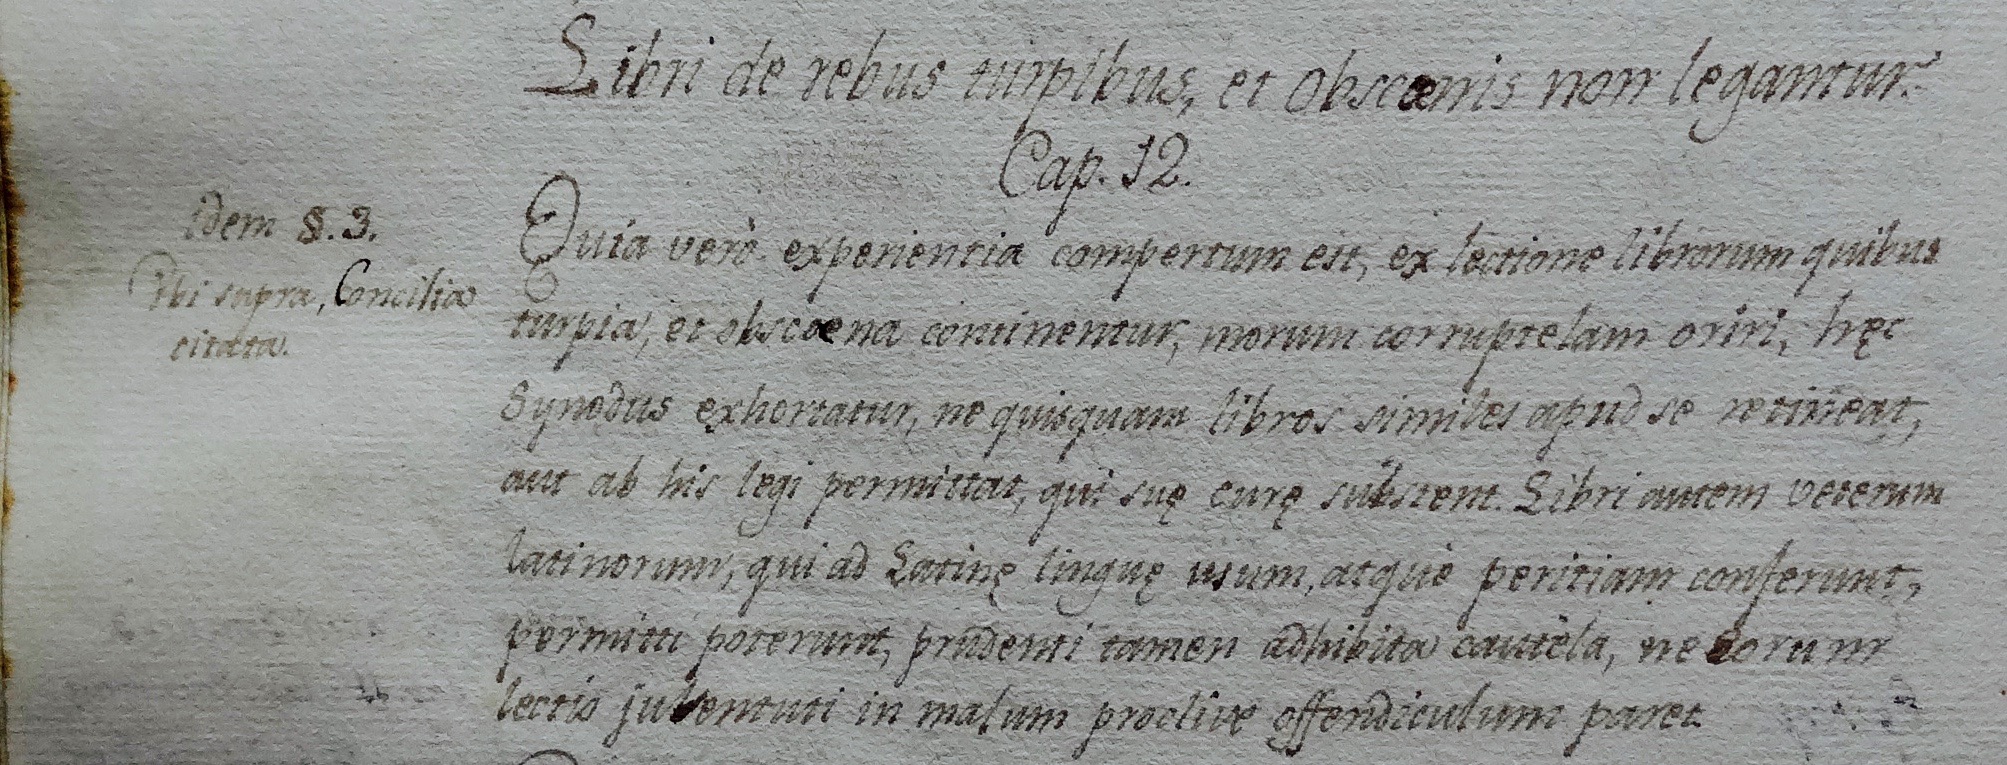 Libri de rebus turpibus, et obscœnis non legantur.
Cap. 12.
idem §. 3.
Vbi supra, Concilia
citata.
Quia verò experientia compertum est, ex lectione librorum quibus
turpia, et obscœna continentur, morum corruptelam oriri, hęc
Synodus exhortatur, ne quisquam libros similes apud se retineat,
aut ab his legi permittat, qui suę curę subsient. Libri autem veterum
latinorum, qui ad Latinę linguę usum, atque peritiam conferunt,
permitti poterunt, prudenti tamen adhibita cautela, ne eorum
lectio juventuti in malum proclive offendiculum paret